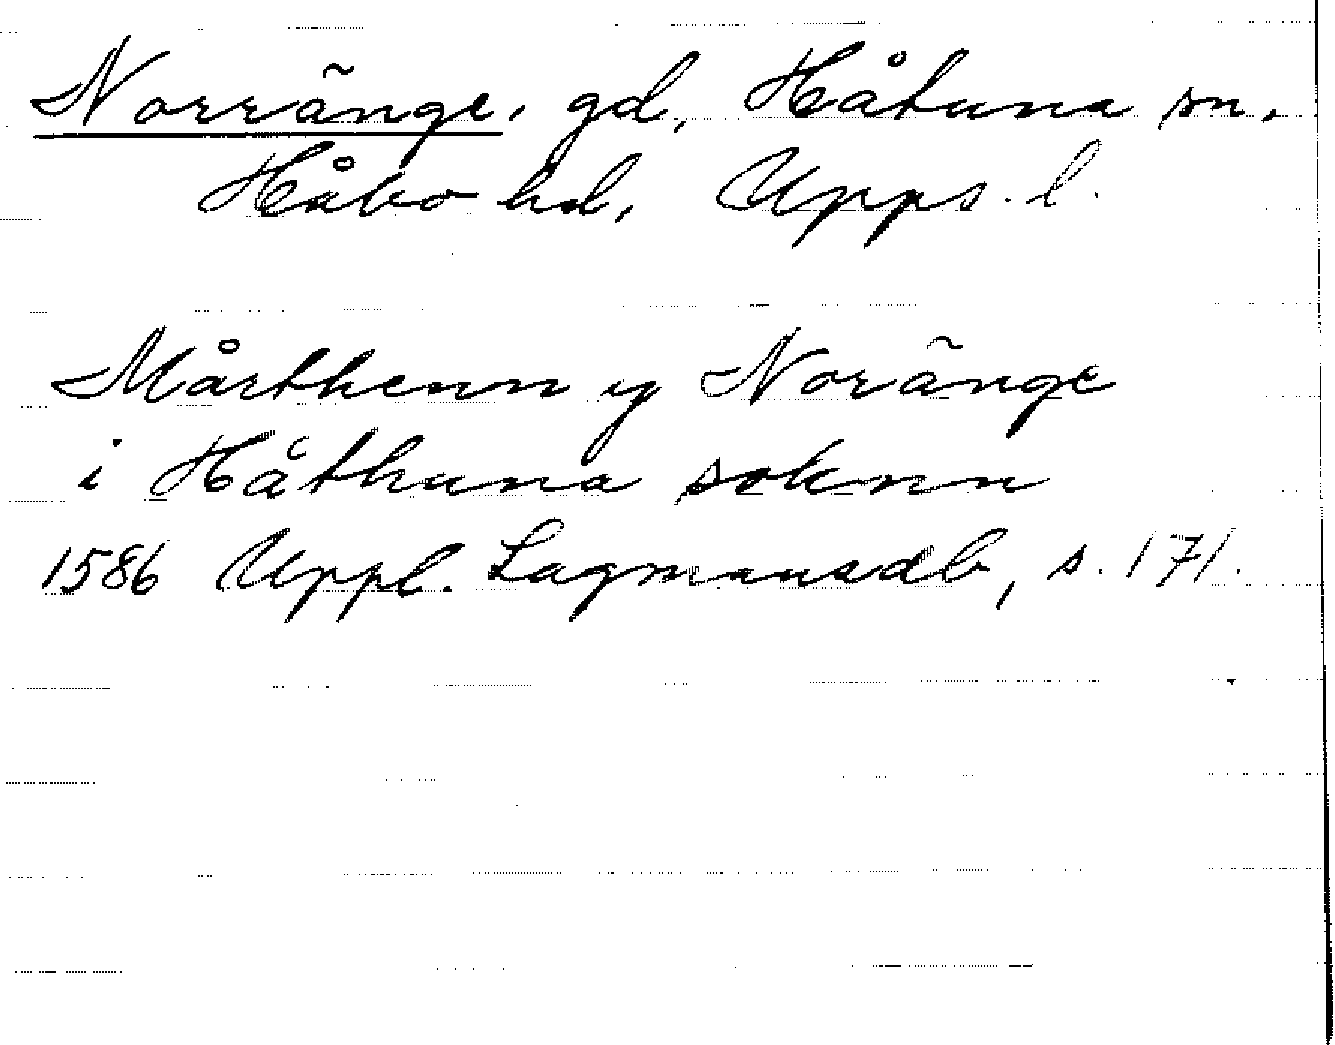 Norränge, gd, Håtuna sn,
Håbo hd, Upps. l.
Mårthenn y Noränge
i Håthuna soknn
1586 Uppl. Lagmansdb, s. 171.